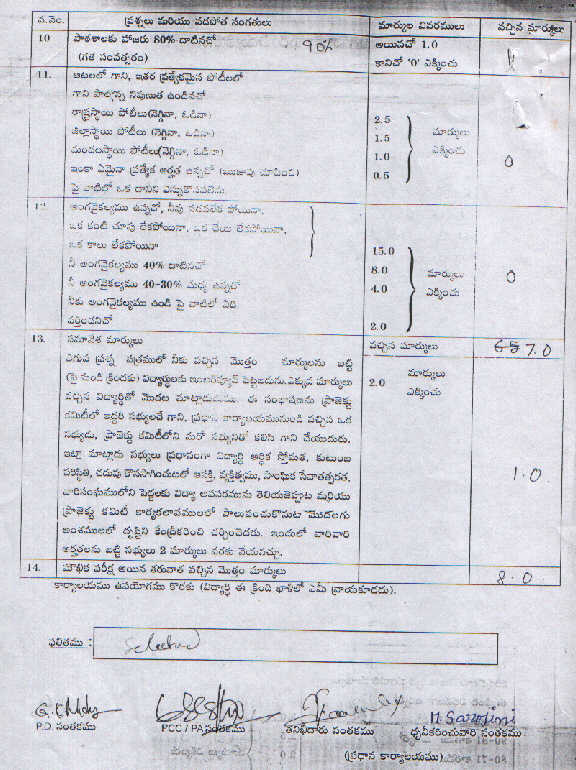 వ.నెం. ప్రశ్నలు మరియు వడపోత సంగతులు మార్కుల వివరములు వచ్చిన మార్కులు
10 పాఠశాలకు హాజరు 80% దాటినచో 90% అయినచో 1.0
(గత సంవత్సరం) కానిచో '0' ఎక్కించు
11. ఆటలలో గాని, ఇతర ప్రత్యేకమైన పోటీలలో
గాని పాల్గొన్న నిపుణుత ఉండినచో
రాష్ట్రస్థాయి పోటీలు (నెగ్గినా, ఓడినా) 2.5 మార్కులు
జిల్లాస్థాయి పోటీలు (నెగ్గినా, ఓడినా) 1.5 ఎక్కించు
మండలస్థాయి పోటీలు (నెగ్గినా, ఓడినా) 1.0 0
ఇంకా ఏమైనా ప్రత్యేక అర్హత ఉన్నచో (ఋజువు చూపించి) 0.5
పై వాటిలో ఒక దానిని ఎన్నుకొనవలెను
12 అంగవైకల్యము ఉన్నచో, నీవు నడవలేక పోయినా,
ఒక కంటి చూపు లేకపోయినా, ఒక చేయి లేకపోయినా,
ఒక కాలు లేకపోయినా 15.0
నీ అంగవైకల్యము 40% దాటినచో 8.0 మార్కులు 0
నీ అంగవైకల్యము 40-30% మధ్య ఉన్నచో 4.0 ఎక్కించు
నీకు అంగవైకల్యము ఉండి పై వాటిలో ఏది
వర్తించనిచో 2.0
13. సమావేశ మార్కులు వచ్చిన మార్కులు 7.0
ఎగువ ప్రశ్న పత్రములో నీకు వచ్చిన మొత్తం మార్కులను బట్టి మార్కులు
(పై నుండి క్రిందకు) విద్యార్థులకు ఇంటర్వ్యూ పెట్టబడును. ఎక్కువ మార్కులు 2.0 ఎక్కించు
వచ్చిన విద్యార్థితో మొదట మాట్లాడుదుము. ఈ సంభాషణను ప్రాజెక్టు
కమిటీలో ఇద్దరు సభ్యులచే గాని, ప్రధాన కార్యాలయమునుండి వచ్చిన ఒక
సభ్యుడు, ప్రాజెక్టు కమిటీలోని మరో సభ్యునితో కలిసి గాని చేయుదురు.
ఇట్లా మాట్లాడు సభ్యులు ప్రధానంగా విద్యార్థి ఆర్థిక స్తోమత, కుటుంబ
పరిస్థితి, చదువు కొనసాగించుటలో ఆసక్తి, వ్యక్తిత్వము, సాంఘిక సేవాతత్పరత, 1.0
వారిసంఘములోని పెద్దలకు విద్యా అవసరమును తెలియజెప్పుట మరియు
ప్రాజెక్టు కమిటీ కార్యకలాపములలో పాలుపంచుకొనుట మొదలగు
అంశములలో దృష్టిని కేంద్రీకరించి చర్చించెదరు. ఇందులో వారివారి
అర్హతలను బట్టి సభ్యులు 2 మార్కులు వరకు వేయవచ్చు.
14. మౌఖిక పరీక్ష అయిన తరువాత వచ్చిన మొత్తం మార్కులు 8.0
కార్యాలయము ఉపయోగము కొరకు (విద్యార్థి ఈ క్రింది ఖాళీలో ఏమీ వ్రాయకూడదు).
ఫలితము : Selected
M. Sarojini
P.D. సంతకము PCC / PA సంతకము తనిఖీదారు సంతకము ధృవీకరించువారి సంతకము
(ప్రధాన కార్యాలయము)